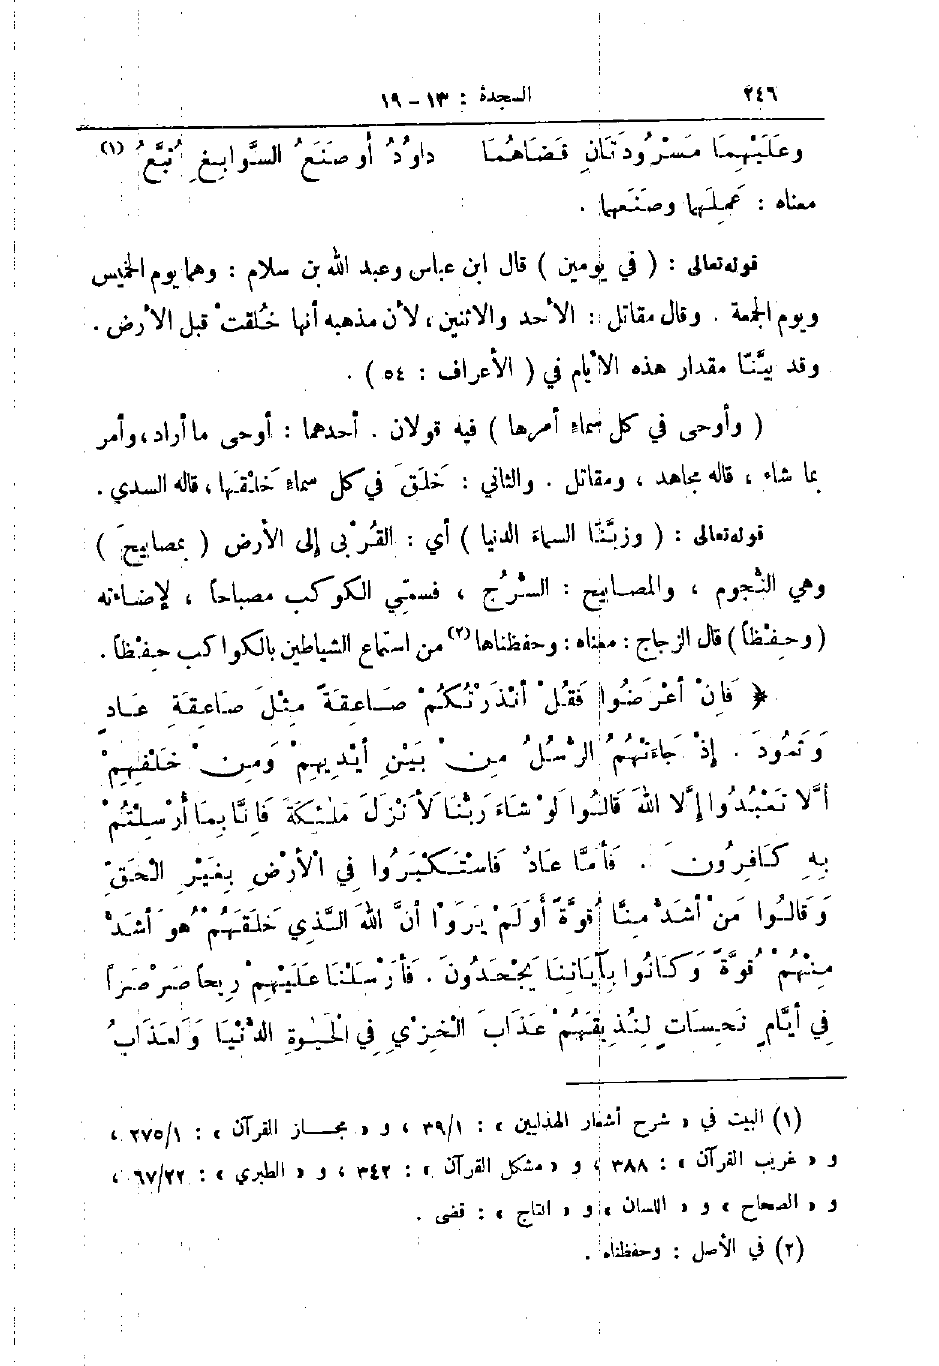 ٢٤٦ السجدة : ١٣ - ١٩
وعَلَيْهِما مَسْرُودَتَانِ قَضَاهُمَا داوُدُ أو صَنَعُ السَّوابِغِ تُبَّعُ (١)
معناه : عَمِلَها وصَنَعها .
قوله تعالى : ( في يومين ) قال ابن عباس وعبد الله بن سلام : وهما يوم الخميس
ويوم الجمعة . وقال مقاتل : الأحد والاثنين ، لأن مذهبه أنها خُلقتْ قبل الأرض .
وقد بيَّنّا مقدار هذه الأيام في ( الأعراف : ٥٤ ) .
( وأوحى في كل سماءٍ أمرها ) فيه قولان . أحدهما : أوحى ما أراد ، وأمر
بما شاء ، قاله مجاهد ، ومقاتل . والثاني : خَلَقَ في كل سماءٍ خَلْقَها ، قاله السدي .
قوله تعالى : ( وزيَّنَّا السماءَ الدنيا ) أي : القُرْبى إلى الأرض ( بمصابيحَ )
وهي النُّجوم ، والمصابيح : السُّرُج ، فسمّي الكوكب مصباحاً ، لإضاءته
( وحِفْظاً ) قال الزجاج : معناه : وحفظناها (٢) من استماع الشياطين بالكواكب حِفْظاً .
﴿ فَإنْ أعْرَضُوا فَقُلْ أنْذَرْتُكُمْ صَاعِقَةً مِثْلَ صَاعِقَةِ عَادٍ
وَثَمُودَ . إذْ جَاءَتْهُمُ الرُّسُلُ مِنْ بَيْنِ أيْدِيهِمْ وَمِنْ خَلْفِهِمْ
ألَّا تَعْبُدُوا إلَّا اللهَ قَالُوا لَوْ شَاءَ رَبُّنَا لأَنْزَلَ مَلٰئِكَةً فَإنَّا بِمَا أُرْسِلْتُمْ
بِهِ كَافِرُونَ . فَأمَّا عَادٌ فَاسْتَكْبَرُوا فِي الْأرْضِ بِغَيْرِ الْحَقِّ
وَقَالُوا مَنْ أشَدُّ مِنَّا قُوَّةً أوَلَمْ يَرَوْا أنَّ اللهَ الَّذِي خَلَقَهُمْ هُوَ أشَدُّ
مِنْهُمْ قُوَّةً وَكَانُوا بِآيَاتِنَا يَجْحَدُونَ . فَأرْسَلْنَا عَلَيْهِمْ رِيحاً صَرْصَراً
فِي أيَّامٍ نَحِسَاتٍ لِنُذِيقَهُمْ عَذَابَ الْخِزْيِ فِي الْحَيٰوةِ الدُّنْيَا وَلَعَذَابُ
(١) البيت في « شرح أشعار الهذليين » : ٣٩/١ ، و « مجاز القرآن » : ٢٧٥/١ ،
و « غريب القرآن » : ٣٨٨ ، و « مشكل القرآن » : ٣٤٢ ، و « الطبري » : ٦٧/٢٢ ،
و « الصحاح » و « اللسان » و « التاج » : قضى .
(٢) في الأصل : وحفظناه .